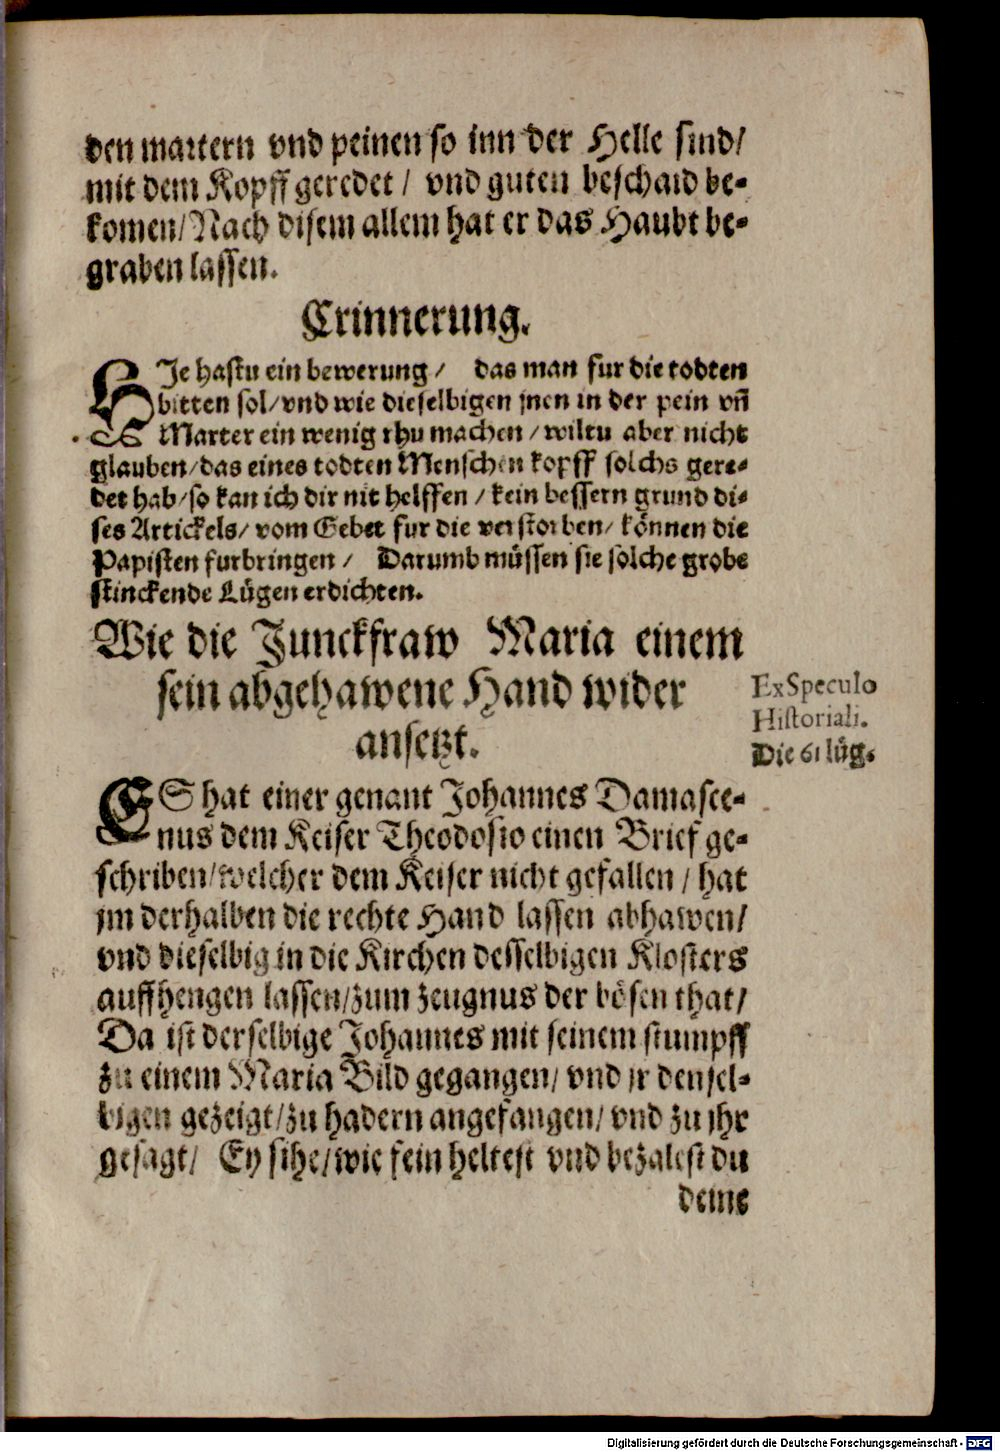 den martern vnd peinen so inn der Helle sind/
mit dem Kopff geredet / vnd guten beschaid be-
komen/Nach disem allem hat er das Haubt be-
graben lassen.
Erinnerung.
HJe hastu ein bewerung / das man fur die todten
bitten sol/vnd wie dieselbigen jnen in der pein vñ
Marter ein wenig rhu machen / wiltu aber nicht
glauben/das eines todten Menschen kopff solchs gere-
det hab/so kan ich dir nit helffen / kein bessern grund di-
ses Artickels/ vom Gebet fur die verstorben/ können die
Papisten furbringen / Darumb müssen sie solche grobe
stinckende Lügen erdichten.
Wie die Junckfraw Maria einem
sein abgehawene Hand wider
ansetzt.
Ex Speculo
Historiali.
Die 61 lüg.
ES hat einer genant Johannes Damasce-
nus dem Keiser Theodosio einen Brief ge-
schriben/welcher dem Keiser nicht gefallen / hat
jm derhalben die rechte Hand lassen abhawen/
vnd dieselbig in die Kirchen desselbigen Klosters
auffhengen lassen/zum zeugnus der bösen that/
Da ist derselbige Johannes mit seinem stumpff
zu einem Maria Bild gegangen/ vnd jr densel-
bigen gezeigt/zu hadern angefangen/ vnd zu jhr
gesagt/ Ey sihe/wie fein heltest vnd bezalest du
deine
Digitalisierung gefördert durch die Deutsche Forschungsgemeinschaft - DFG